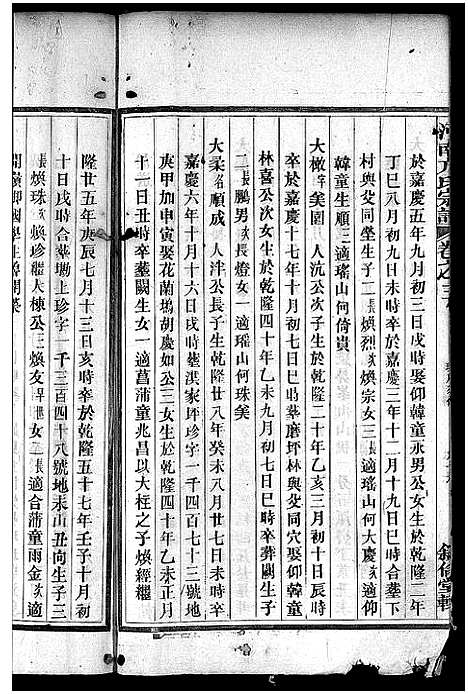 大於嘉慶五年九月初三日戌時娶仰韓童永男公女生於乾隆二年
丁巳八月初九日未時卒於嘉慶三年十二月十九日巳時合葬下
村與父同穴生子三長煥烈次煥宗女三長適瑤山何大慶次適仰
韓童生順三適瑤山何倚貴
大檄字美園 人沅公次子生於乾隆二十年乙亥三月初十日辰時
卒於嘉慶十七年十月初七日巳時葬磨坪林與父同穴娶仰韓童
林喜公次女生於乾隆四十年乙未九月初七日未時卒葬闕生子
二長鵬男次長燈女一適瑤山何珠美
大柔名順成 人泮公長子生乾隆廿八年癸未八月廿七日未時卒
嘉慶六年十月十六日戌時葬洪家坪珍字一千四百七十三號地
庚甲加申寅娶花蘭塢胡慶如公三女生於乾隆四十年乙未正月
十一日丑時卒葬闕生女一適菖蒲童兆昌以大枉之子煥經繼
隆廿五年庚辰七月十三日亥時卒於乾隆五十七年壬子十月初
十日戌時合葬塢上珍字一千三百四十八號地未山丑向生子三
長煥珠次煥珍繼大棟公三煥友女二長適合蒲童雨金次適